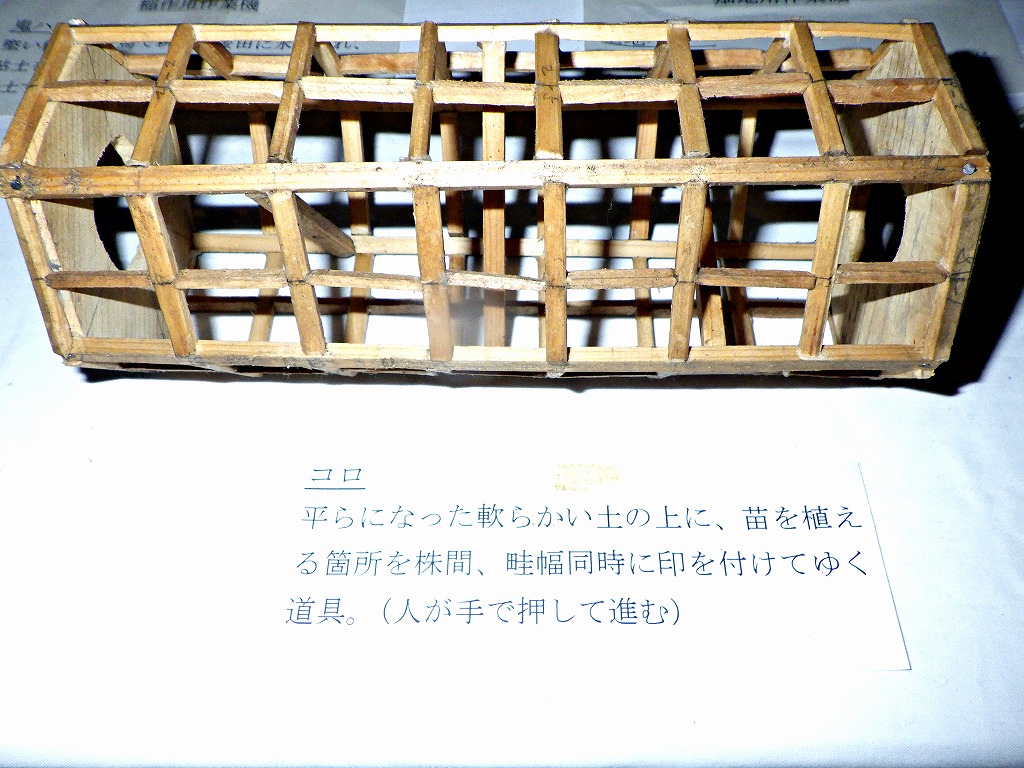 稲作用作業機
コロ
平らになった軟らかい土の上に、苗を植え
る箇所を株間、畦幅同時に印を付けてゆく
道具。(人が手で押して進む)